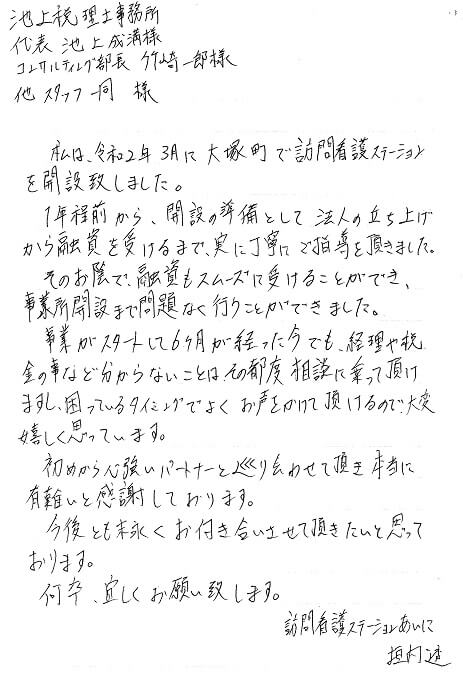 池上税理士事務所
代表 池上成満様
コンサルティング部長 竹崎一郎様
他スタッフ一同 様
私は、令和2年3月に大塚町で訪問看護ステーション
を開設致しました。
1年程前から、開設の準備として 法人の立ち上げ
から融資を受けるまで、実に丁寧にご指導を頂きました。
そのお陰で、融資もスムーズに受けることができ、
事業所開設まで問題なく行うことができました。
事業がスタートして6ヶ月が経った今でも、経理や税
金の事など分からないことはその都度 相談に乗って頂け
ますし、困っているタイミングでよく お声をかけて頂けるので、大変
嬉しく思っています。
初めから心強いパートナーと巡り会わせて頂き 本当に
有難いと感謝しております。
今後とも末永くお付き合いさせて頂きたいと思って
おります。
何卒、宜しくお願い致します。
訪問看護ステーションあいに
垣内